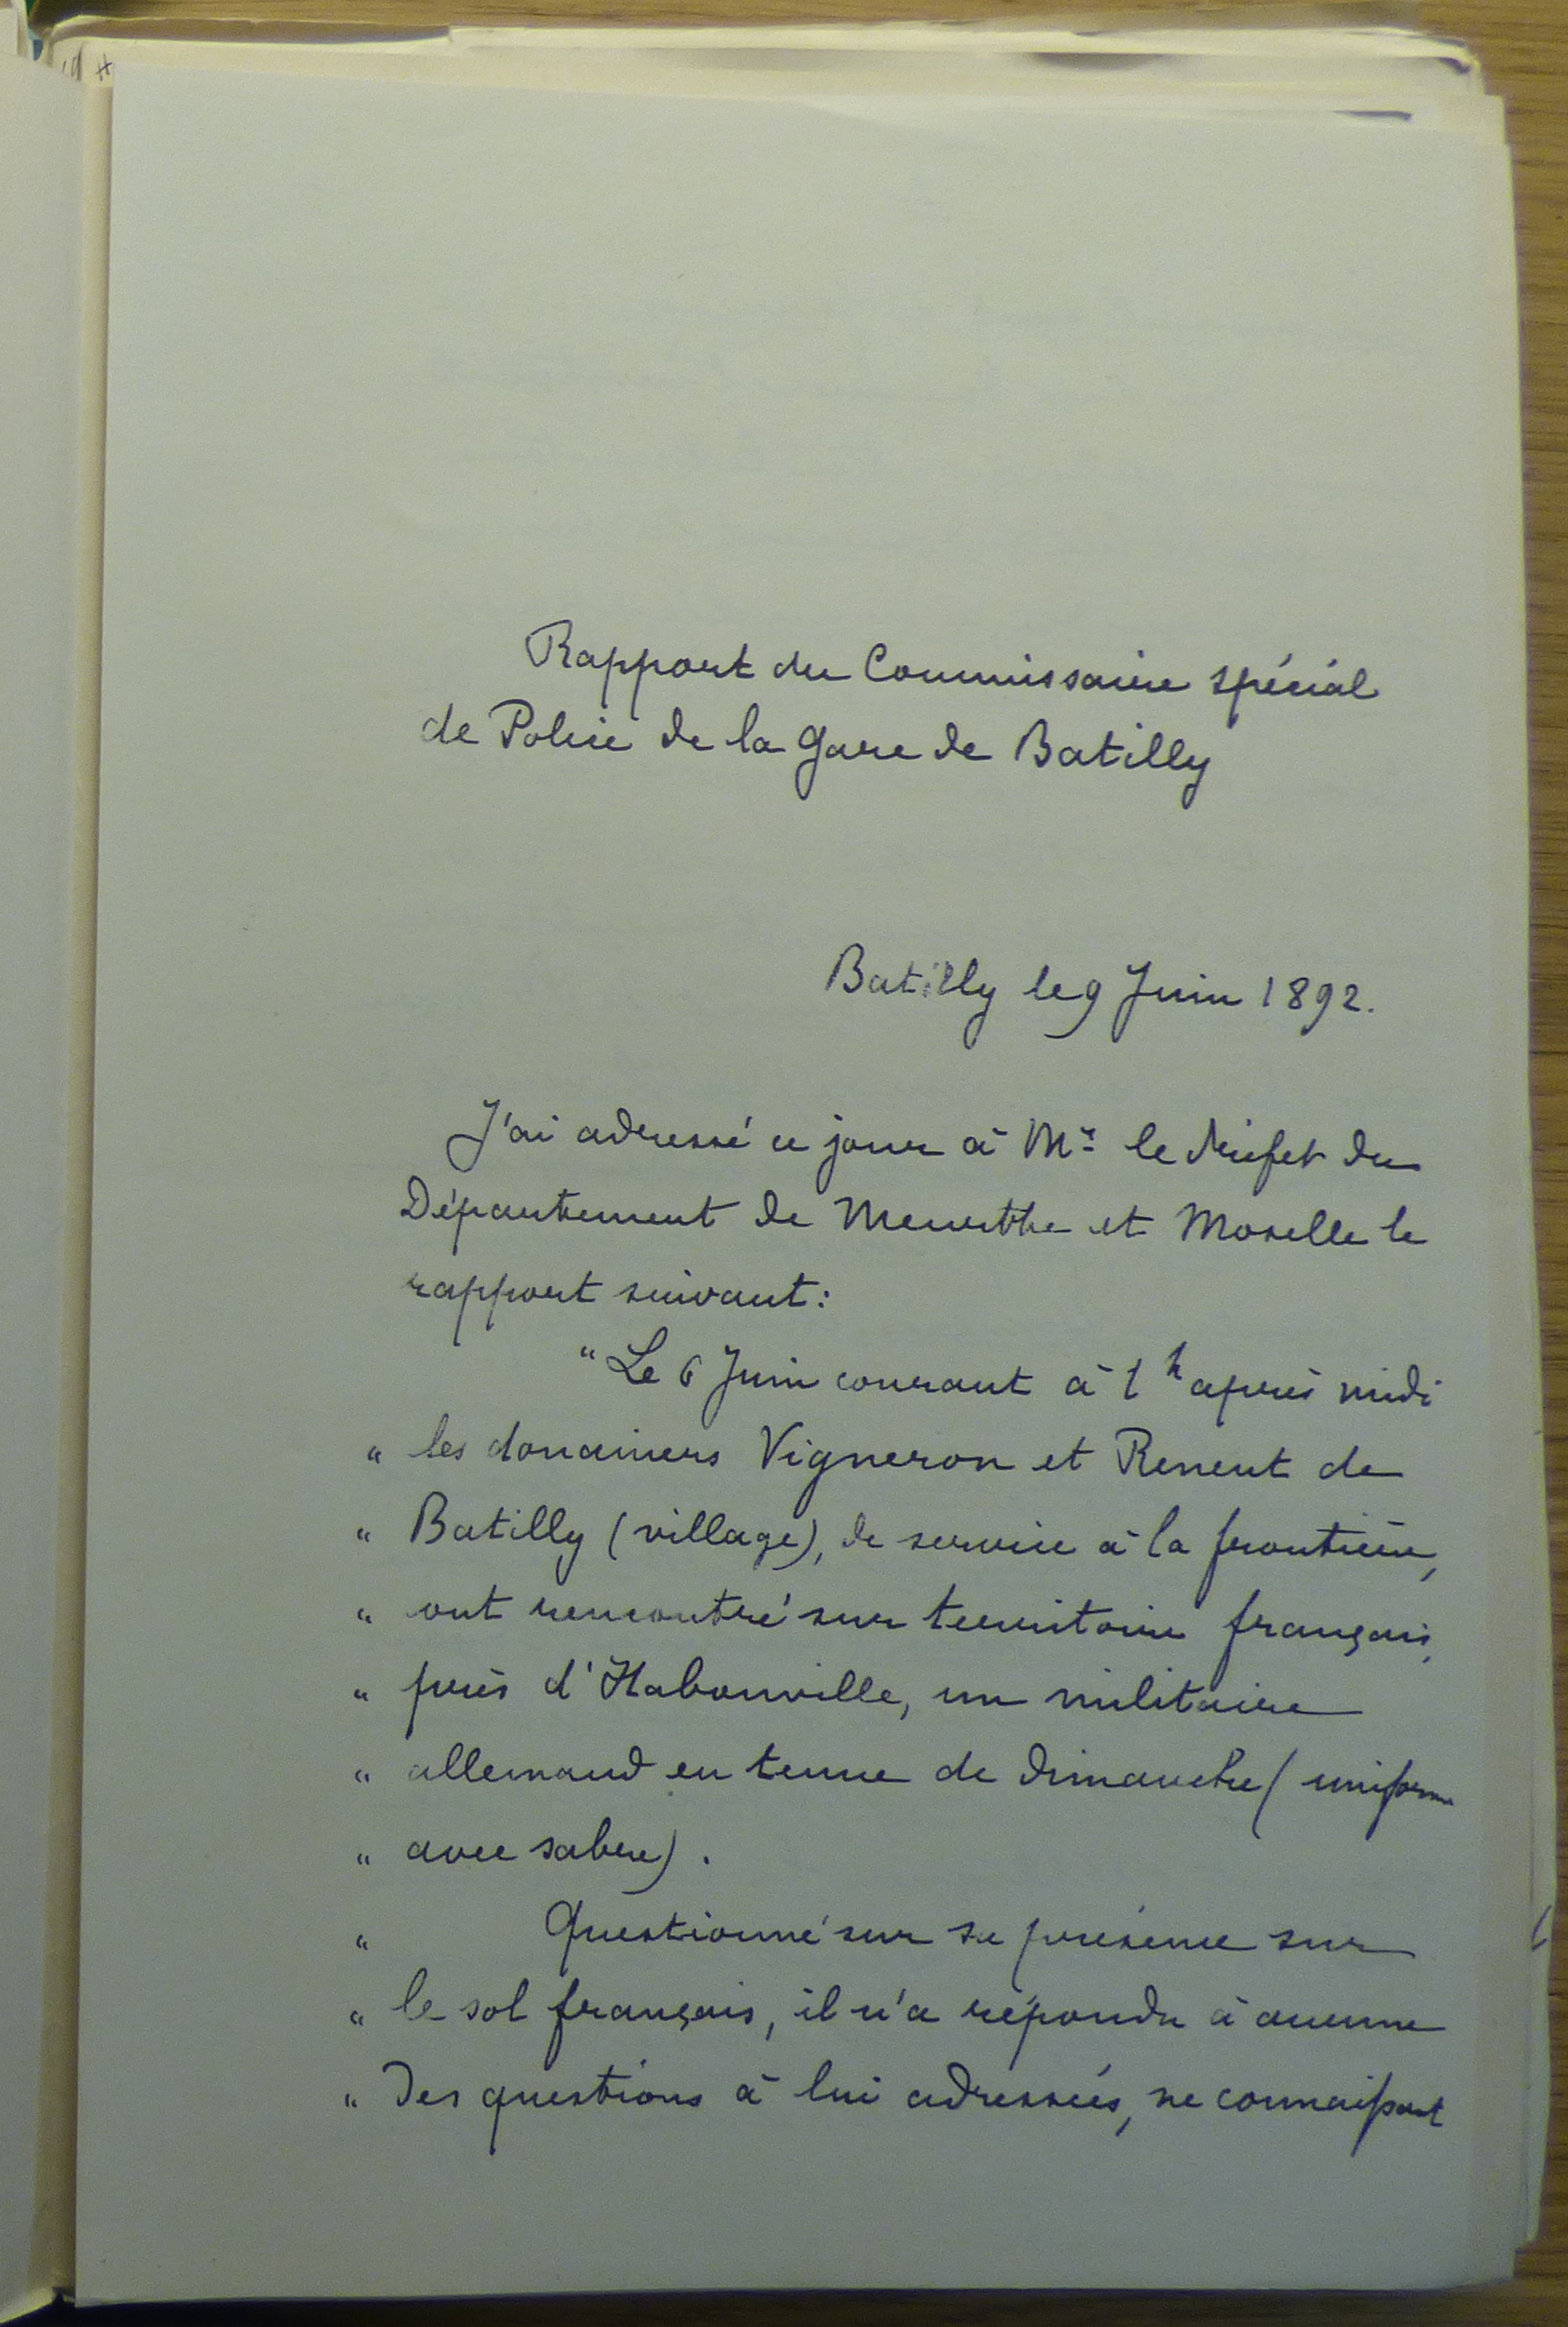 Rapport du Commissaire spécial
de Police de la Gare de Batilly
Batilly le 9 Juin 1892.
J'ai adressé ce jour à Mr le Préfet du
Département de Meurthe et Moselle le
rapport suivant:
" Le 6 Juin courant à 1 h après midi
" les douaniers Vigneron et Renent de
" Batilly (village), de service à la frontière,
" ont rencontré sur territoire français,
" près d'Habonville, un militaire
" allemand en tenue de dimanche (uniforme
" avec sabre).
" Questionné sur sa présence sur
" le sol français, il n'a répondu à aucune
" des questions à lui adressées, ne connaissant